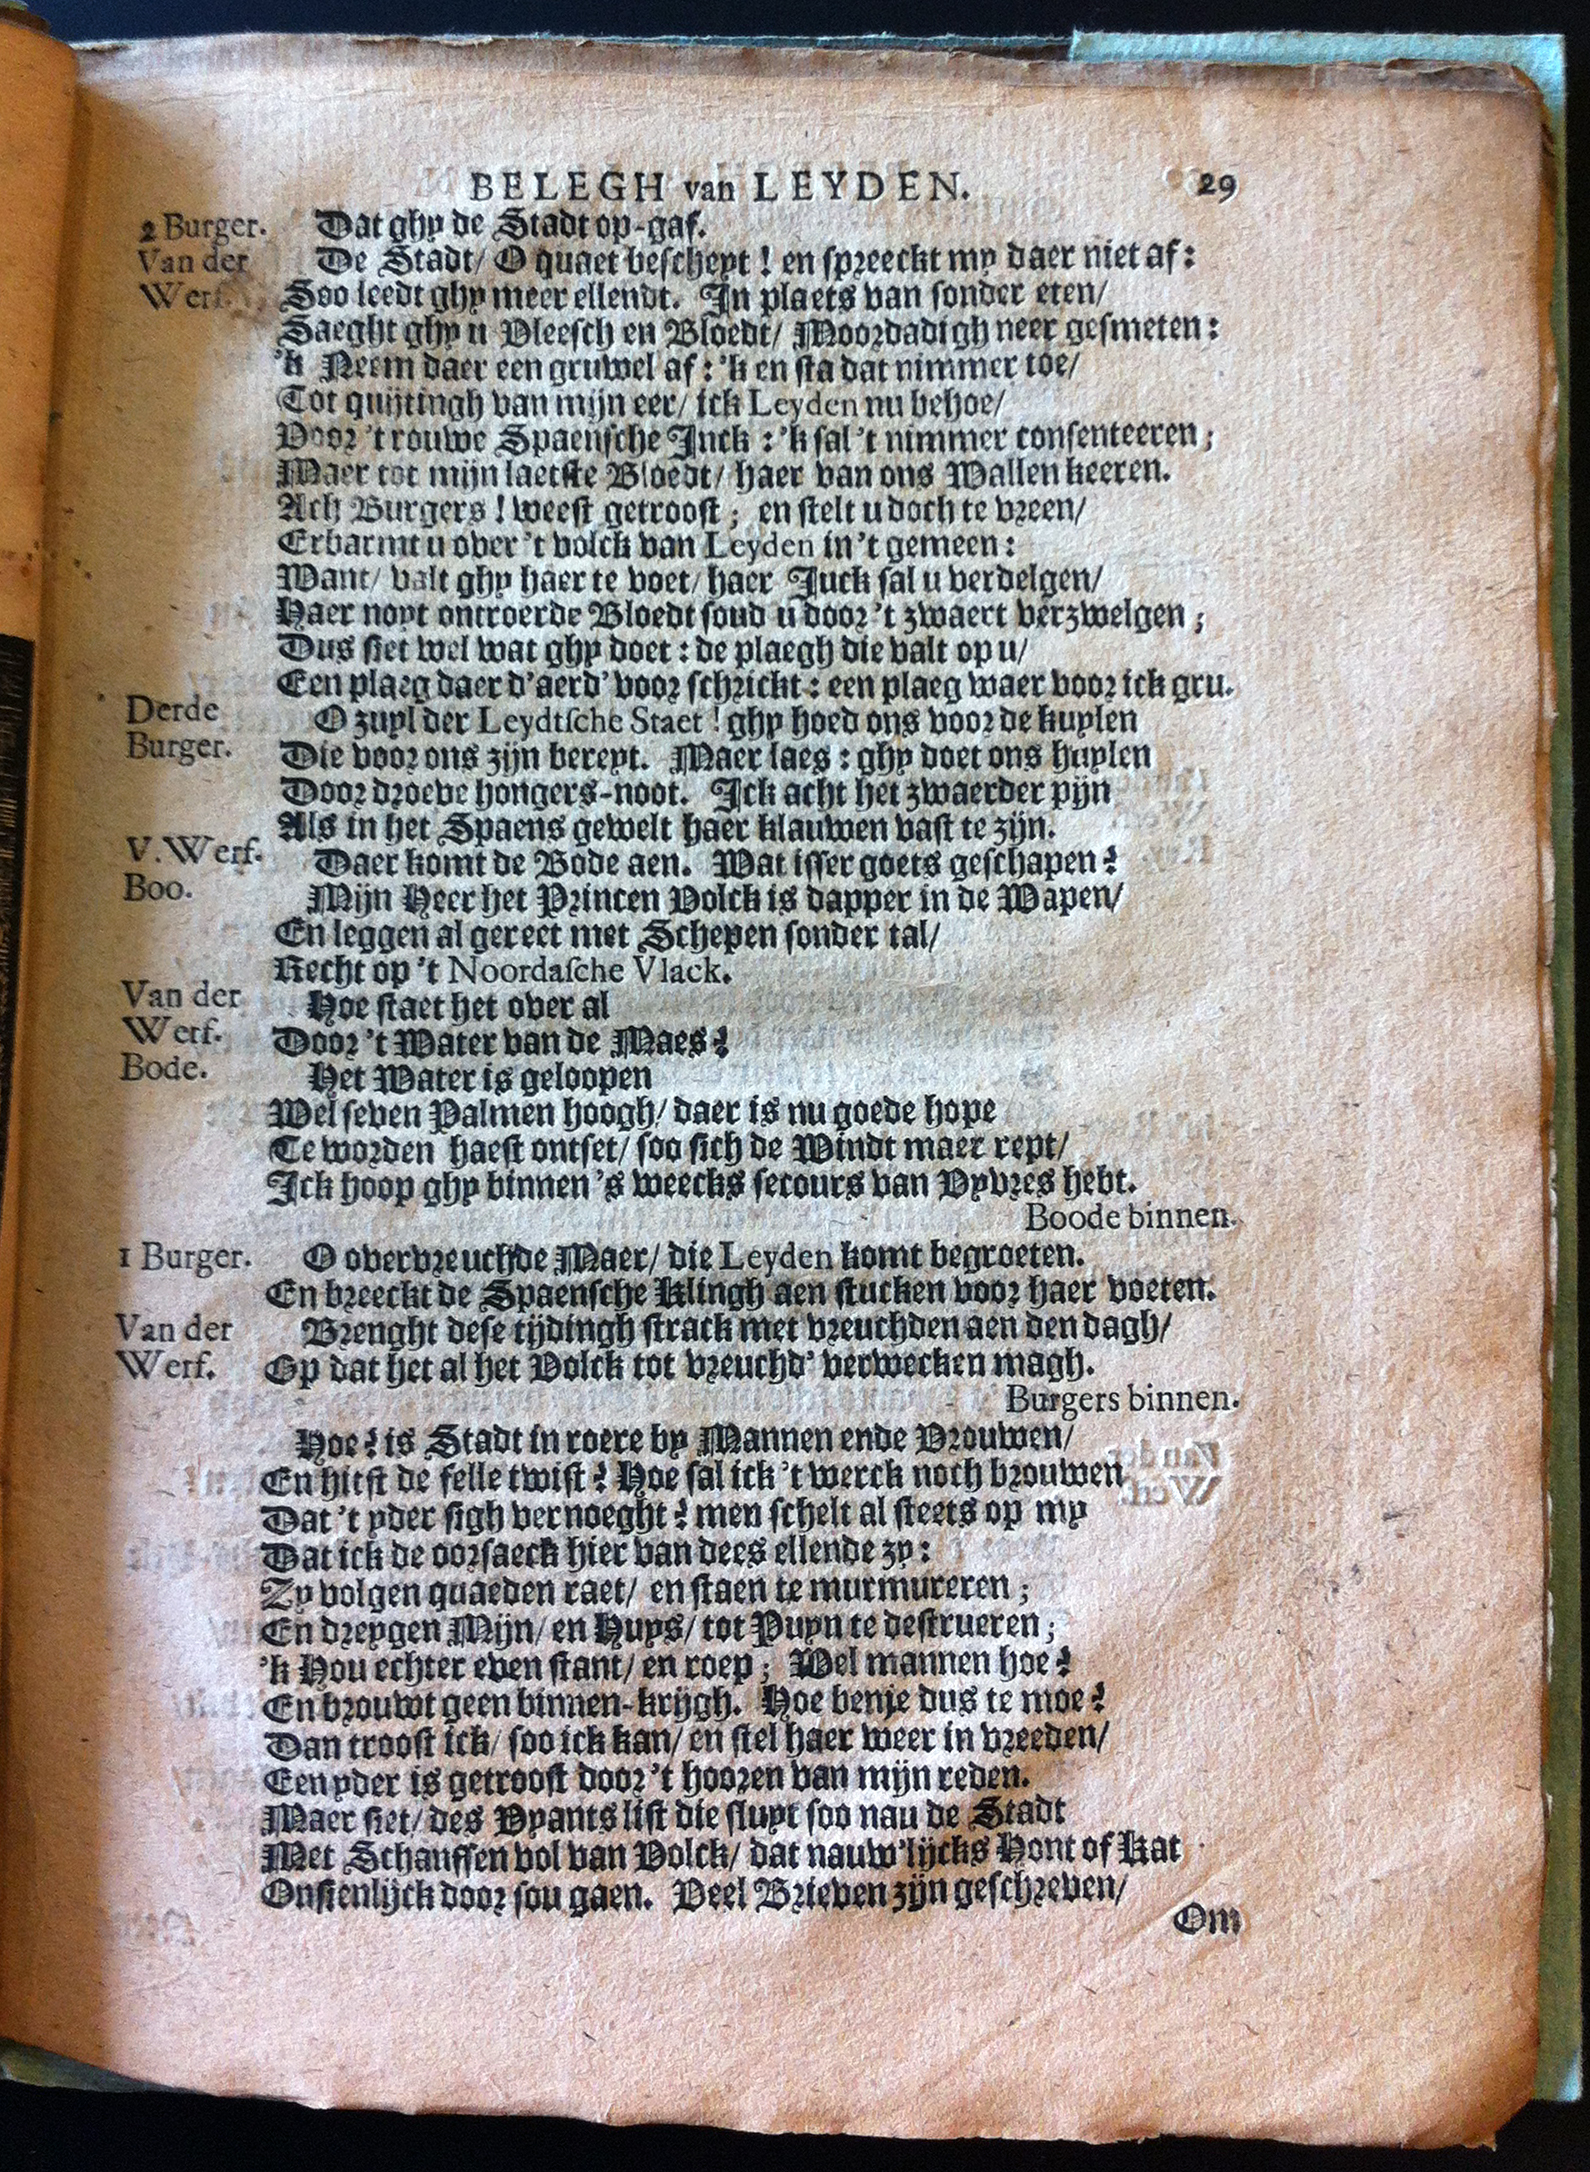 BELEGH van LEYDEN. 29
2 Burger. Dat ghy de Stadt op-gaf.
Van der De Stadt/ O quaet bescheyt! en spreeckt my daer niet af:
Werf. Soo leedt ghy meer ellendt. In plaets van sonder eten/
Saeght ghy u Vleesch en Bloedt/ Moordadigh neer gesmeten:
'k Neem daer een gruwel af: 'k en sta dat nimmer toe/
Tot quijtingh van mijn eer/ ick Leyden nu behoe/
Voor 't rouwe Spaensche Juck: 'k sal 't nimmer consenteeren;
Maer tot mijn laetste Bloedt/ haer van ons Wallen keeren.
Ach Burgers! weest getroost; en stelt u doch te vreen/
Erbarmt u over 't volck van Leyden in 't gemeen:
Want/ valt ghy haer te voet/ haer Juck sal u verdelgen/
Haer noyt ontroerde Bloedt soud u door 't zwaert verzwelgen;
Dus siet wel wat ghy doet: de plaegh die valt op u/
Een plaeg daer d'aerd' voor schrickt: een plaeg waer voor ick gru.
Derde O zuyl der Leydtsche Staet! ghy hoed ons voor de kuylen
Burger. Die voor ons zijn bereyt. Maer laes: ghy doet ons huylen
Door droeve hongers-noot. Ick acht het zwaerder pijn
Als in het Spaens gewelt haer klauwen vast te zijn.
V. Werf. Daer komt de Bode aen. Wat isser goets geschapen?
Boo. Mijn Heer het Princen Volck is dapper in de Wapen/
En leggen al gereet met Schepen sonder tal/
Recht op 't Noordasche Vlack.
Van der Hoe staet het over al
Werf. Door 't Water van de Maes?
Bode. Het Water is geloopen
Wel seven Palmen hoogh/ daer is nu goede hope
Te worden haest ontset/ soo sich de Windt maer rept/
Ick hoop ghy binnen 's weecks secours van Vyvres hebt.
Boode binnen.
1 Burger. O overvreuchde Maer/ die Leyden komt begroeten.
En breeckt de Spaensche Klingh aen stucken voor haer voeten.
Van der Brenght dese tijdingh strack met vreuchden aen den dagh/
Werf. Op dat het al het Volck tot vreuchd' verwecken magh.
Burgers binnen.
Hoe? is Stadt in roere by Mannen ende Vrouwen/
En hitst de felle twist? Hoe sal ick 't werck noch brouwen
Dat 't yder sigh vernoeght? men schelt al steets op my
Dat ick de oorsaeck hier van dees ellende zy:
Zy volgen quaeden raet/ en staen te murmureren;
En dreygen Mijn/ en Huys/ tot Puyn te destrueren;
'k Hou echter even stant/ en roep; Wel mannen hoe?
En brouwt geen binnen-krijgh. Hoe benje dus te moe?
Dan troost ick/ soo ick kan/ en stel haer weer in vreeden/
Een yder is getroost door 't hooren van mijn reden.
Maer siet/ des Vyants list die sluyt soo nau de Stadt
Met Schanssen vol van Volck/ dat nauw'lijcks Hont of Kat
Onsienlijck door sou gaen. Veel Brieven zijn geschreven/
Om